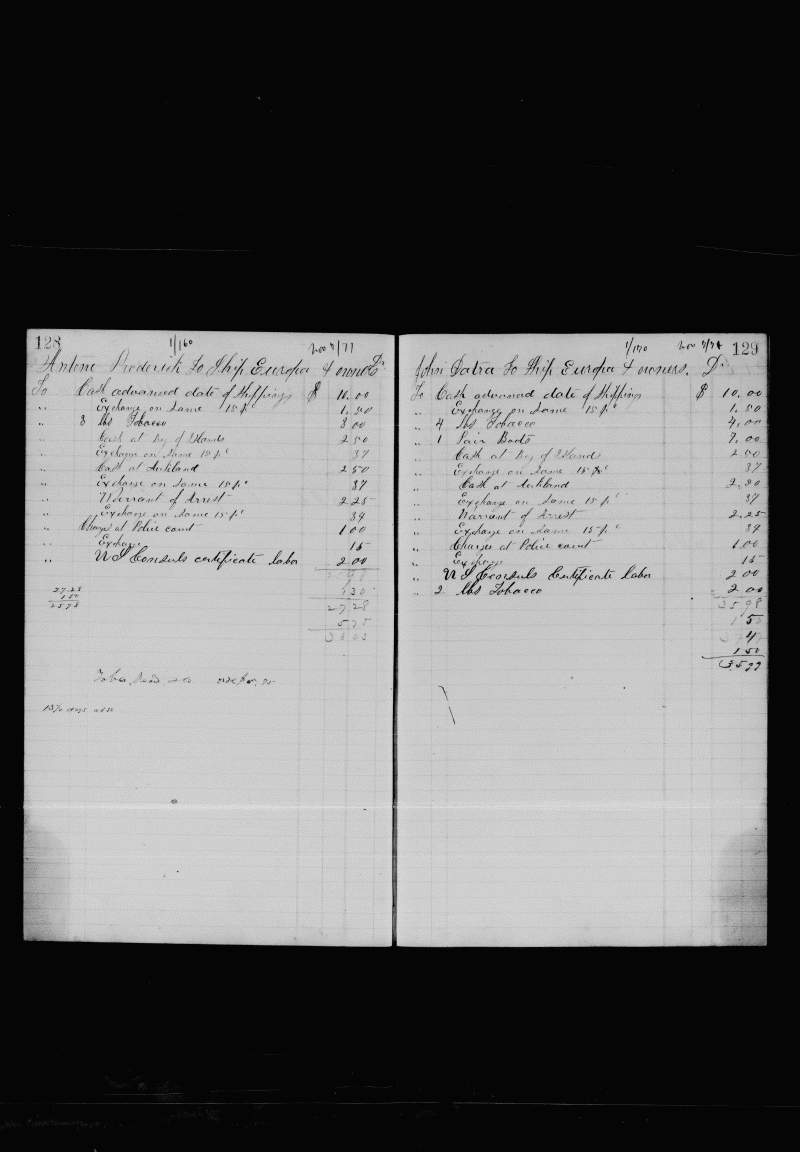 128
1/160
Nov 7/77
Antone Roderick To Ship Europa & owners Dr
To Cash advanced date of Shippings $ 10.00
" Exchange on Same 15 pc 1.50
" 8 lbs Tobacco 8 00
" Cash at Bay of Islands 2 50
" Exchange on Same 15 pc 37
" Cash at Auckland 2 50
" Exchange on Same 15 pc 37
" Warrant of Arrest 2 25
" Exchange on Same 15 pc 34
" Charges at Police court 1 00
" Exchange 15
" U S Consuls certificate labor 2 00
27.28
1 50
2578
27 28
5 75
129
1/170
Nov
John To Ship Europa & owners. Dr
To Cash advanced date of Shippings $ 10.00
" Exchange on Same 15 pc 1.50
" 4 lbs Tobacco 4.00
" 1 Pair Boots 7.00
" Cash at Bay of Islands 2 50
" Exchange on Same 15 pc 37
" Cash at Auckland 2.50
" Exchange on Same 15 pc 37
" Warrant of Arrest 2.25
" Exchange on Same 15 pc 34
" Charges at Police court 1.00
" Exchange 15
" U S Consuls Certificate labor 2 00
" 2 lbs Tobacco 2 00
35 98
1 50
1 50